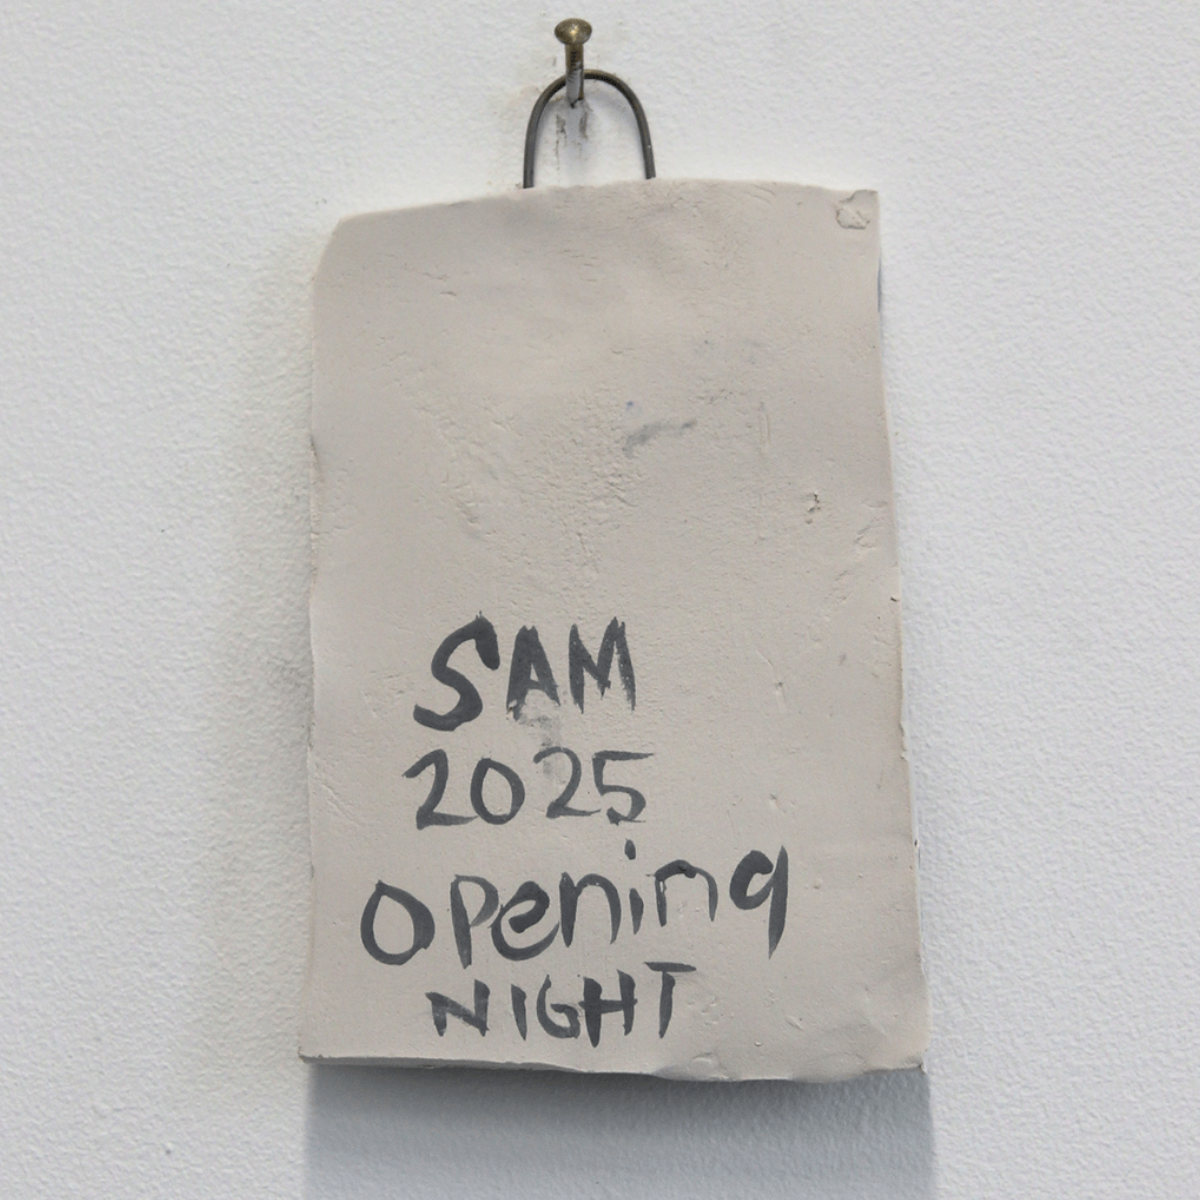 SAM
2025
opening
NIGHT